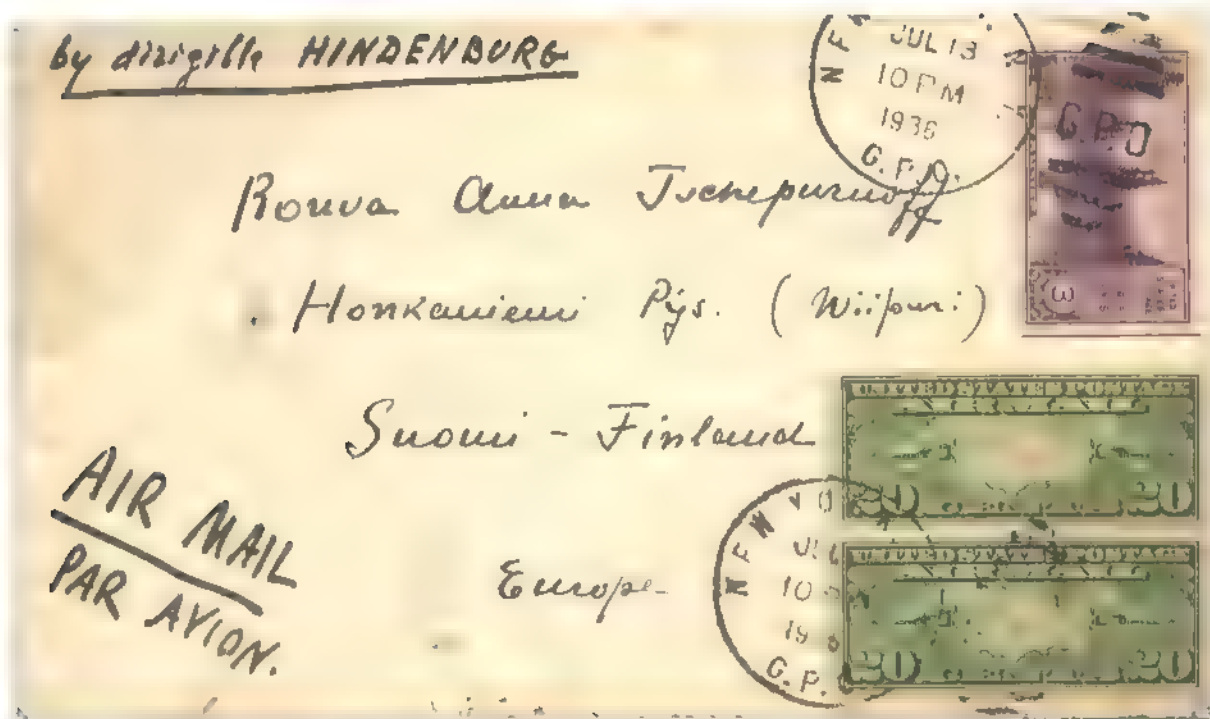 by dirigible HINDENBURG
JUL 13
10 PM
1936
G.P.O.
G.P.O
3
Rouva Anna Tschepurnoff
Honkaniemi Pys. (Wiipuri)
Suomi - Finland
Europe
AIR MAIL
PAR AVION.
UNITED STATES POSTAGE
20 20
NEW YO
JUL
10
19 6
G.P.
UNITED STATES POSTAGE
20 20